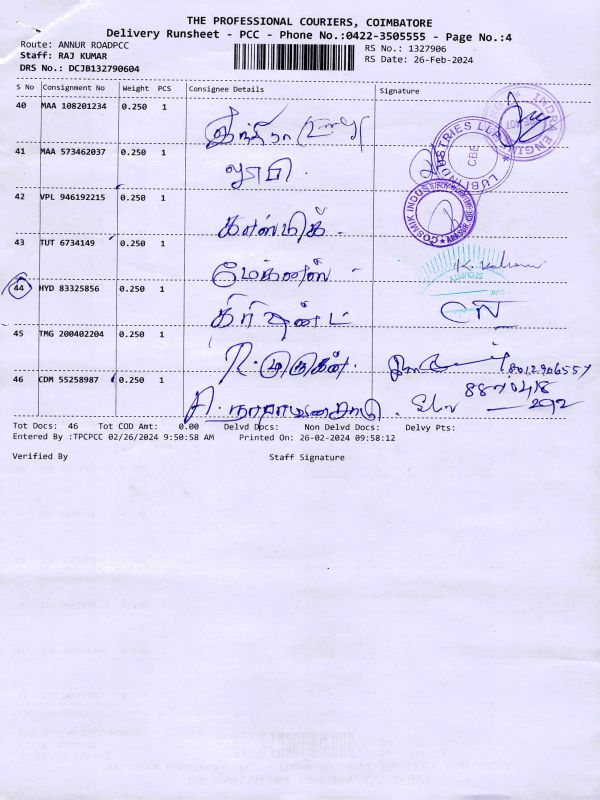 THE PROFESSIONAL COURIERS, COIMBATORE
Delivery Runsheet - PCC - Phone No.:0422-3505555 - Page No.:4
Route: ANNUR ROADPCC
Staff: RAJ KUMAR
DRS No.: DCJB132790604
RS No.: 1327906
RS Date: 26-Feb-2024
S No Consignment No Weight PCS Consignee Details Signature
40 MAA 108201234 0.250 1
இந்திரா
41 MAA 573462037 0.250 1
லூபி
42 VPL 946192215 0.250 1
காஸ்மிக்
43 TUT 6734149 0.250 1
44 HYD 83325856 0.250 1
45 TMG 200402204 0.250 1
R. முருகன்.
8012906557
46 CDM 55258987 0.250 1
8870418
292
INDRA ENGIN
LUBI INDUSTRIES LLP
CBE
COSMIK INDUS
SECURITY
Tot Docs: 46 Tot COD Amt: 0.00 Delvd Docs: Non Delvd Docs: Delvy Pts:
Entered By :TPCPCC 02/26/2024 9:50:58 AM Printed On: 26-02-2024 09:58:12
Verified By Staff Signature